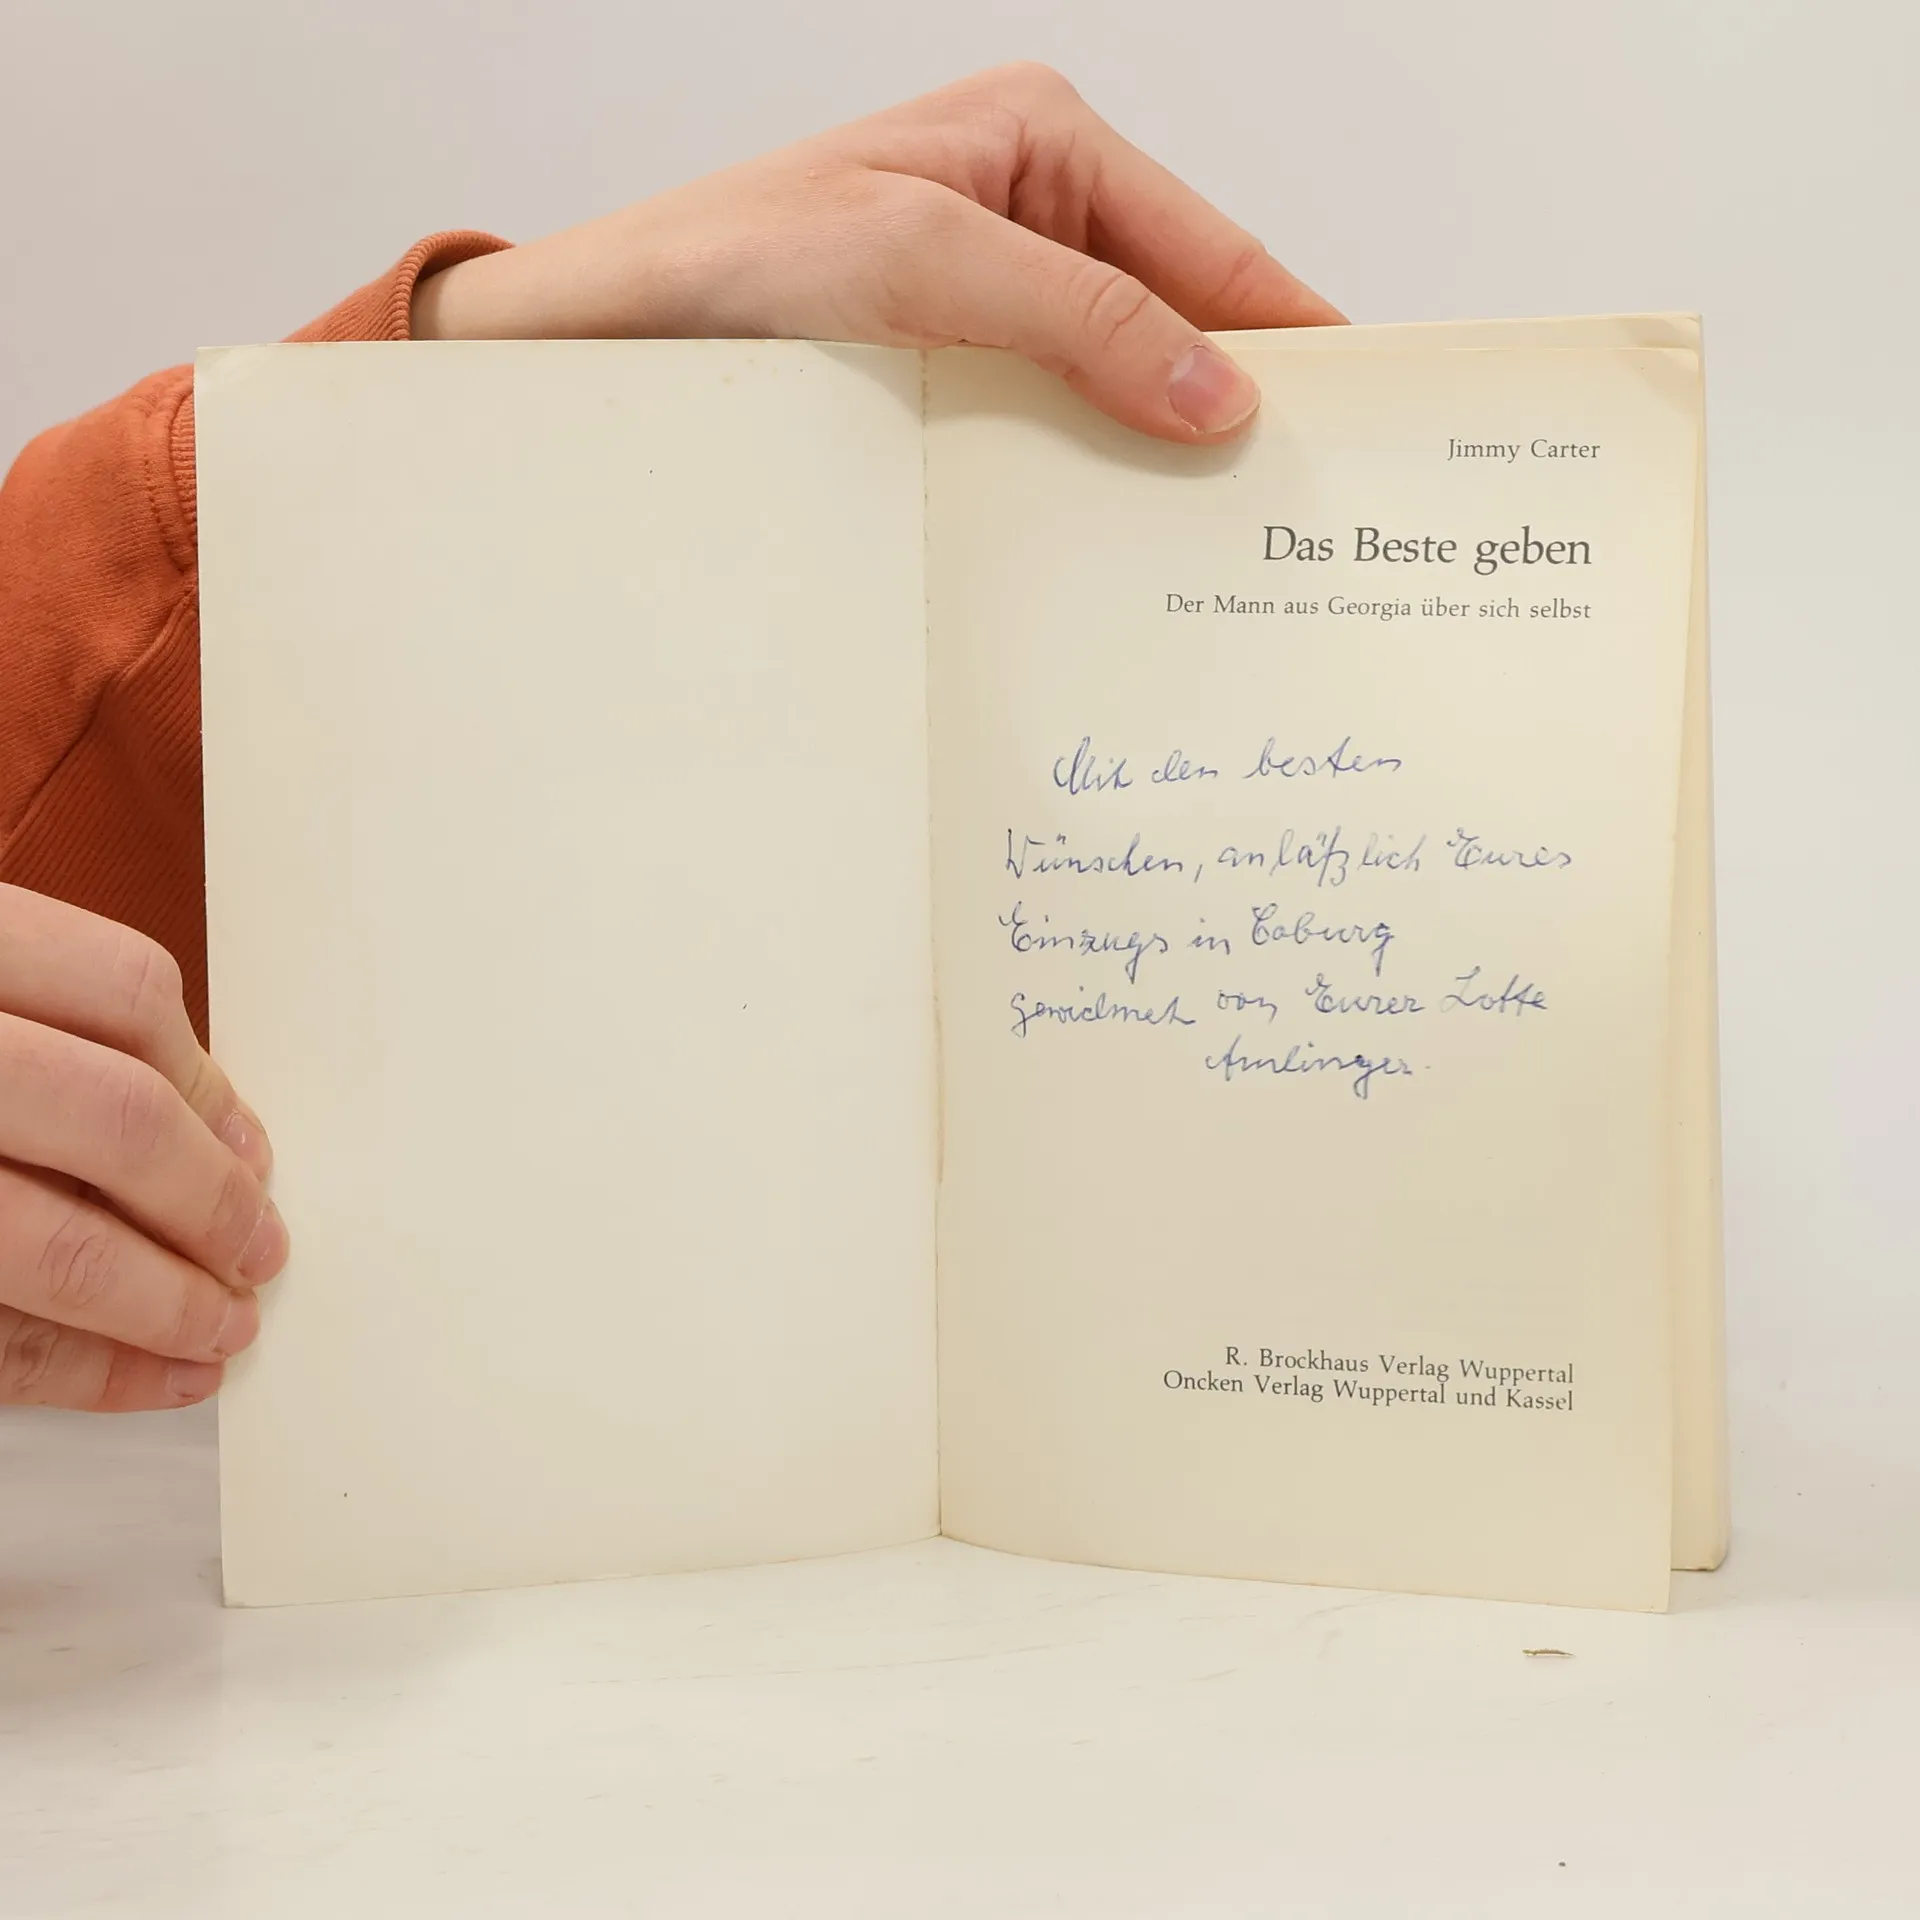 Jimmy Carter
Das Beste geben
Der Mann aus Georgia über sich selbst
Mit den besten
Wünschen, anläßlich Eures
Einzugs in Coburg
gewidmet von Eurer Lotte
Amlinger.
R. Brockhaus Verlag Wuppertal
Oncken Verlag Wuppertal und Kassel